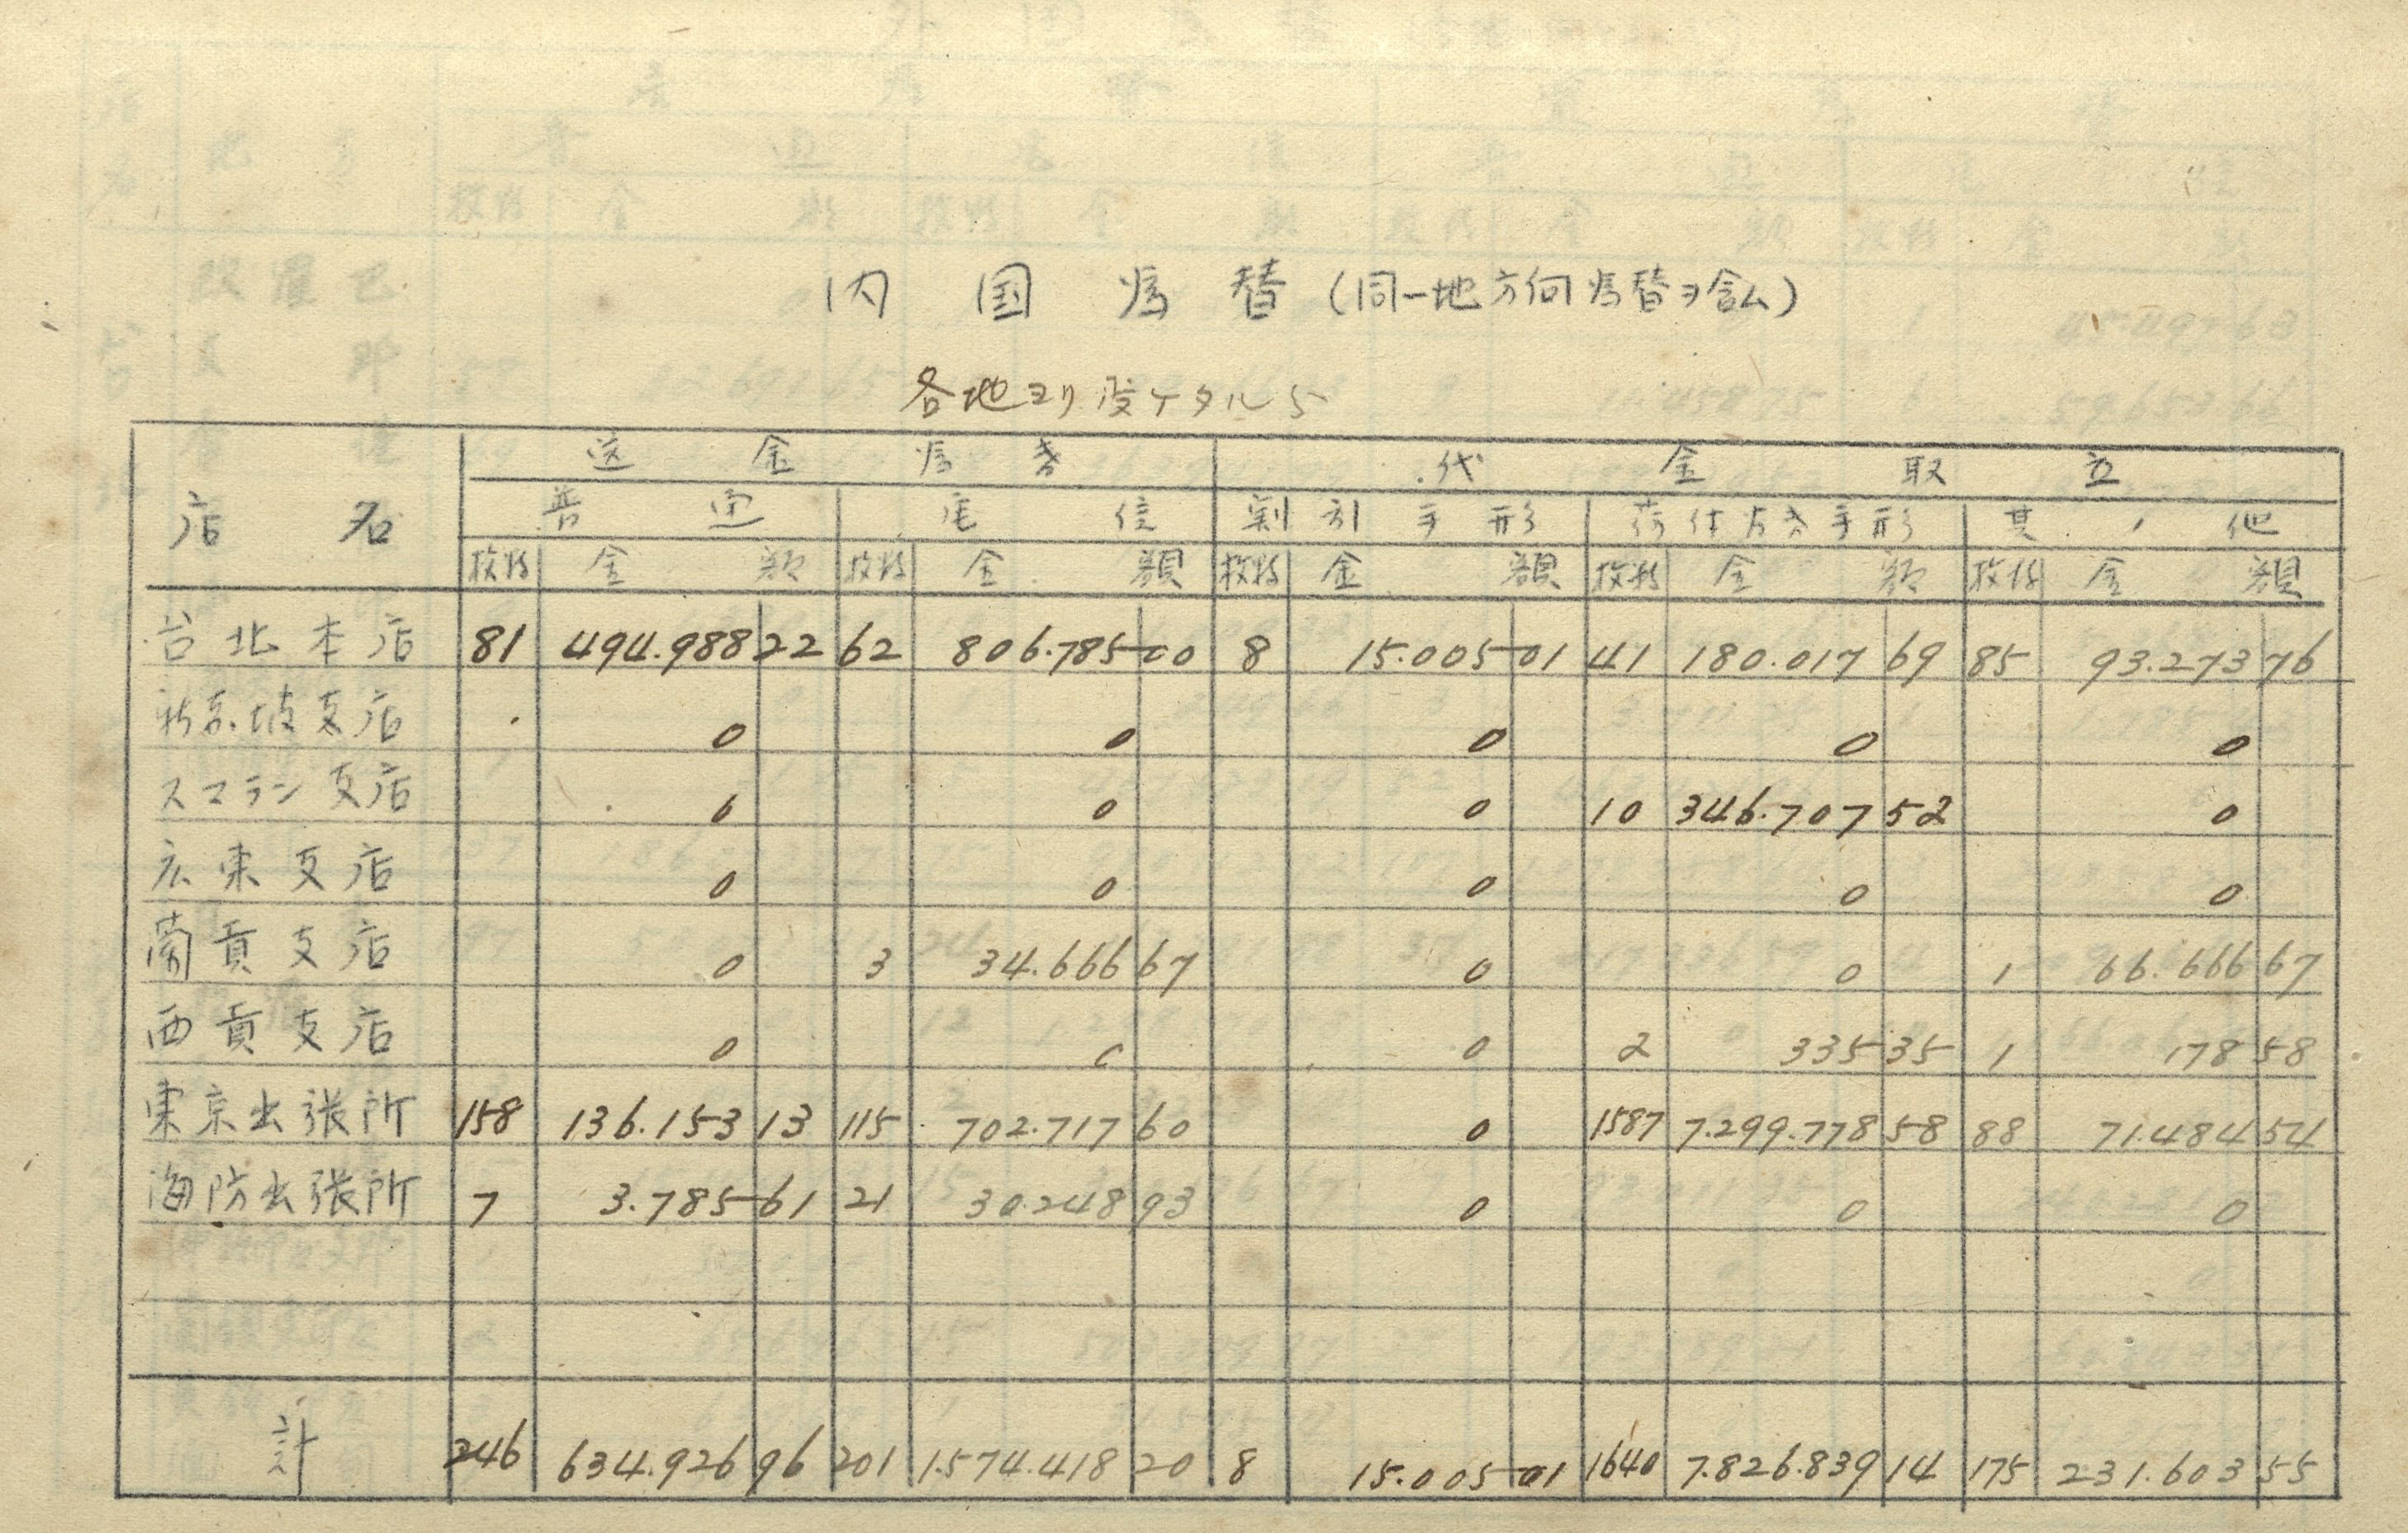 内国為替(同一地方向為替ヲ含ム)
各地ヨリ受ケタル分
店名 送金為替 代金取立
普通 電信 割引手形 荷付為替手形 其ノ他
枚数 金額 枚数 金額 枚数 金額 枚数 金額 枚数 金額
台北本店 81 494.988 22 62 806.785 00 8 15.005 01 41 180.017 69 85 93.273 76
新嘉坡支店 0 0 0 0 0
スマラン支店 0 0 0 10 346.707 52 0
広東支店 0 0 0 0 0
蘭貢支店 0 3 34.666 67 0 0 1 66.666 67
西貢支店 0 0 0 2 335 35 1 178 58
東京出張所 158 136.153 13 115 702.717 60 0 1587 7.299.778 58 88 71.484 54
海防出張所 7 3.785 61 21 30.248 93 0 0 0
計 246 634.926 96 201 1.574.418 20 8 15.005 01 1640 7.826.839 14 175 231.603 55